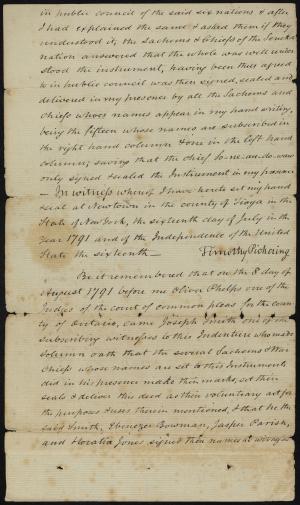 in public council of the said six nations & after
I had explained the same & asked them if they
understood it, the Sachems & Chiefs of the Seneka
nation answered that the whole was well under
stood the instrument, having been thus agreed
to in public council was then signed, sealed and
delivered in my presence by all the Sachems and
Chiefs whose names appear in my hand writing,
being the fifteen whose names are subscribed in
the right hand column & one in the left hand
column; saving that the chief
only signed & sealed the Instrument in my presence
— In witness whereof I have hereto set my hand
& seal at Newtown in the county of Tioga in the
State of New York, the sixteenth day of July in the
year 1791 and of the Independence of the United
States the sixteenth —
Timothy Pickering
Be it remembered that on the 8 day of
August 1791 before me Oliver Phelps one of the
Judges of the court of common pleas for the coun
ty of Ontario, came Joseph Smith one of the
subscribing witnesses to this Indenture who made
solemn oath that the several Sachems & War
Chiefs whose names are set to this Instrument
did in his presence make their marks, set their
seals & deliver this deed as their voluntary act for
the purposes & uses therein mentioned, & that he the
said Smith, Ebenezer Bowman, Jasper Parish,
and Horatio Jones signed their names as witnesses